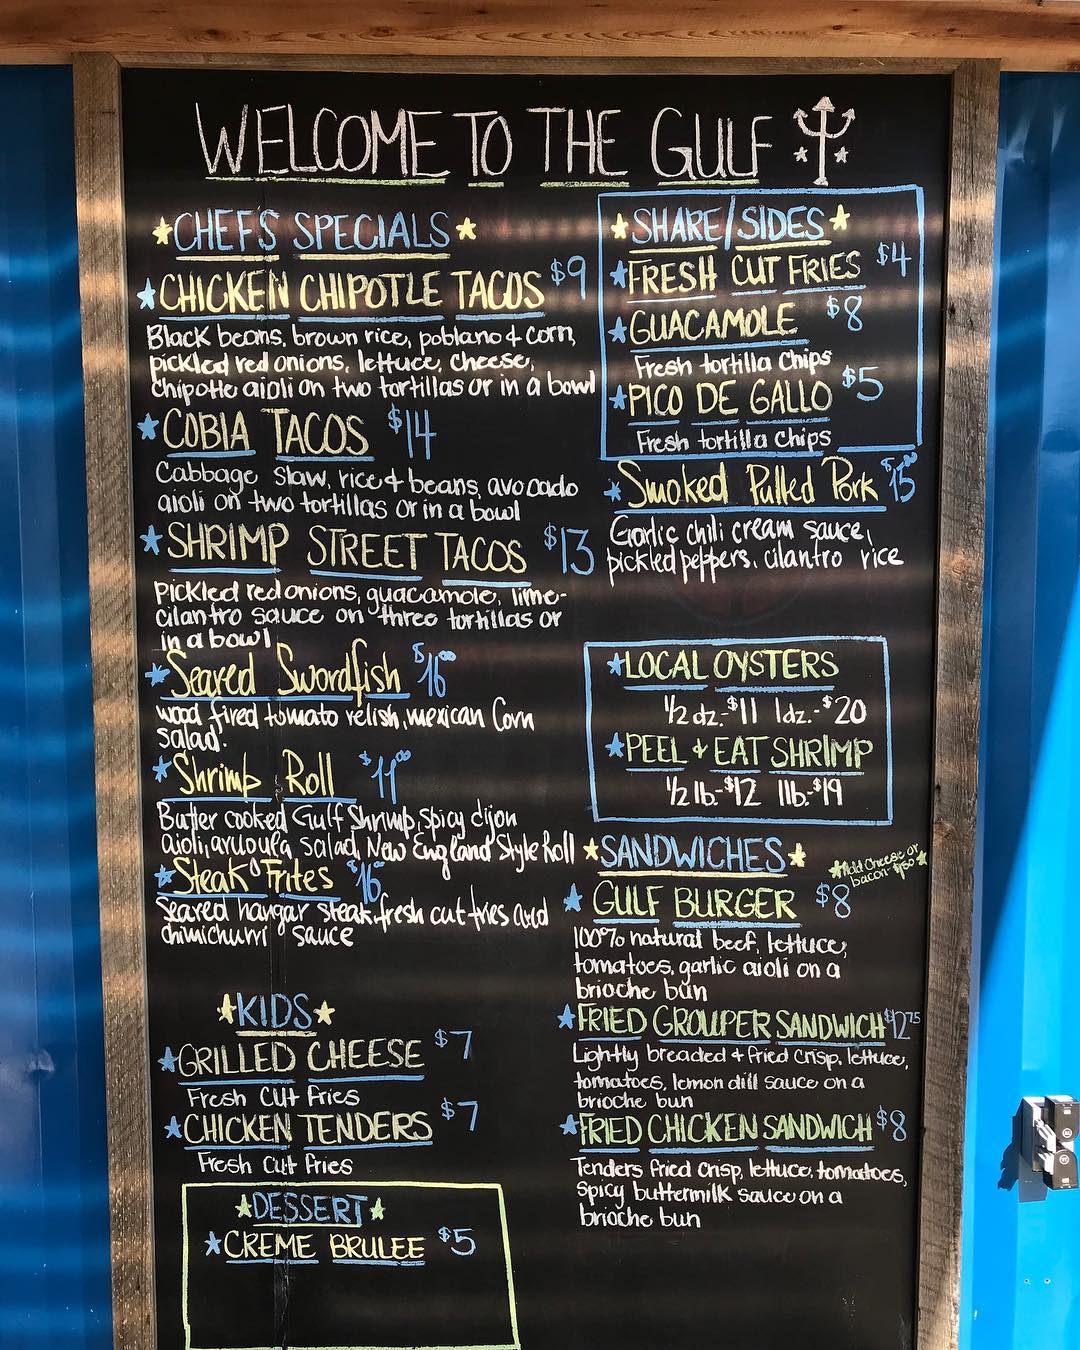 WELCOME TO THE GULF
CHEFS SPECIALS
CHICKEN CHIPOTLE TACOS $9
Black beans, brown rice, poblano & corn,
pickled red onions, lettuce, cheese,
chipotle aioli on two tortillas or in a bowl
COBIA TACOS $14
Cabbage Slaw, rice & beans, avocado
aioli on two tortillas or in a bowl
SHRIMP STREET TACOS $13
pickled red onions, guacamole, lime-
cilantro sauce on three tortillas or
in a bowl
Seared Swordfish $16.00
wood fired tomato relish, mexican Corn
salad.
Shrimp Roll $11.00
Butter cooked Gulf Shrimp, spicy dijon
aioli, arugula salad, New England Style Roll
Steak Frites $16
Seared hangar steak, fresh cut fries and
chimichurri sauce
KIDS
GRILLED CHEESE $7
Fresh Cut Fries
CHICKEN TENDERS $7
Fresh Cut Fries
DESSERT
CREME BRULEE $5
SHARE/SIDES
FRESH CUT FRIES $4
GUACAMOLE $8
Fresh tortilla chips
PICO DE GALLO $5
Fresh tortilla chips
Smoked Pulled Pork $15.00
Garlic chili cream sauce,
pickled peppers, cilantro rice
LOCAL OYSTERS
1/2 dz.-$11 1dz.-$20
PEEL & EAT SHRIMP
1/2 lb.-$12 1lb.-$19
SANDWICHES
Add Cheese or
bacon-$1.50
GULF BURGER $8
100% natural beef, lettuce,
tomatoes, garlic aioli on a
brioche bun
FRIED GROUPER SANDWICH $12.75
Lightly breaded & fried crisp, lettuce,
tomatoes, lemon dill sauce on a
brioche bun
FRIED CHICKEN SANDWICH $8
Tenders fried crisp, lettuce, tomatoes,
spicy buttermilk sauce on a
brioche bun